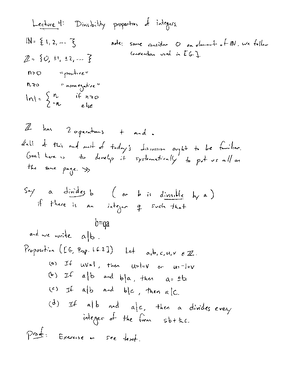 Lecture 4: Divisibility properties of integers
ℕ = {1, 2, ...}   note: some consider 0 an element of ℕ. we follow
convention used in [G].
ℤ = {0, ±1, ±2, ...}
n>0 "positive"
n≥0 "nonnegative"
|n| = { n if n≥0
-n else
ℤ has 2 operations + and •
All of this and most of today's discussion ought to be familiar.
Goal here is to develop it systematically to put us all on
the same page. >>
Say a divides b ( or b is divisible by a )
if there is an integer q such that
b=qa
and we write a|b.
Proposition ([G, Prop. 1.2.2]) Let a,b,c,u,v ∈ ℤ.
(a) If uv=1, then u=v=1 or u=v=-1
(b) If a|b and b|a, then a=±b
(c) If a|b and b|c, then a|c.
(d) If a|b and a|c, then a divides every
integer of the form sb+tc.
Proof: Exercise or see text.